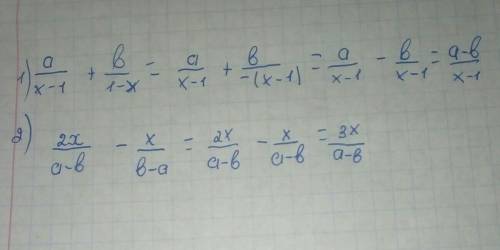 1) a/(x-1) + b/(1-x) = a/(x-1) + b/(-(x-1)) = a/(x-1) - b/(x-1) = (a-b)/(x-1)
2) 2x/(a-b) - x/(b-a) = 2x/(a-b) - x/(a-b) = 3x/(a-b)